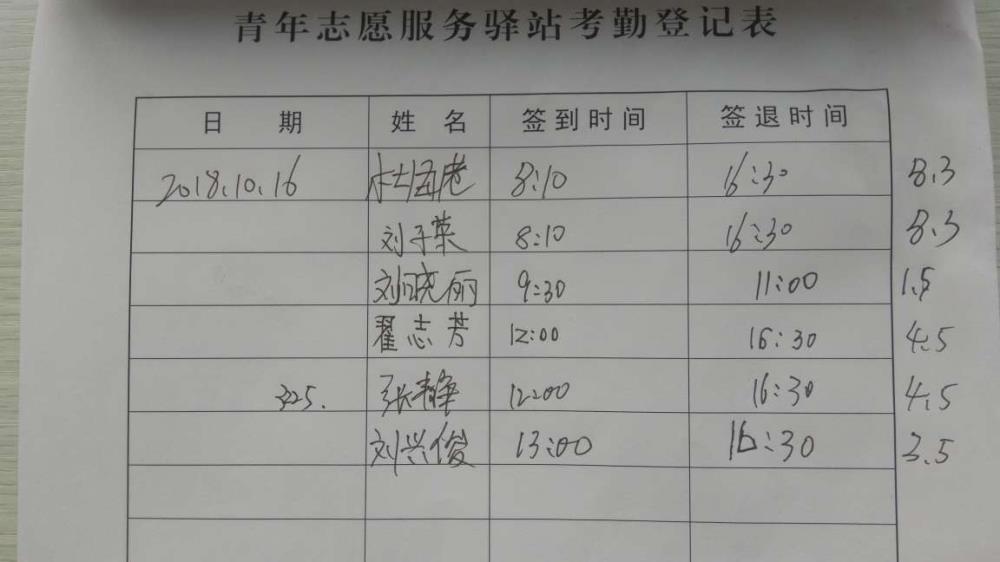 青年志愿服务驿站考勤登记表
日 期 姓 名 签到时间 签退时间
2018.10.16 8:10 16:30 8.3
刘子荣 8:10 16:30 8.3
刘晓丽 9:30 11:00 1.5
翟志芳 12:00 16:30 4.5
325. 张静 12:00 16:30 4.5
刘兴俊 13:00 16:30 3.5